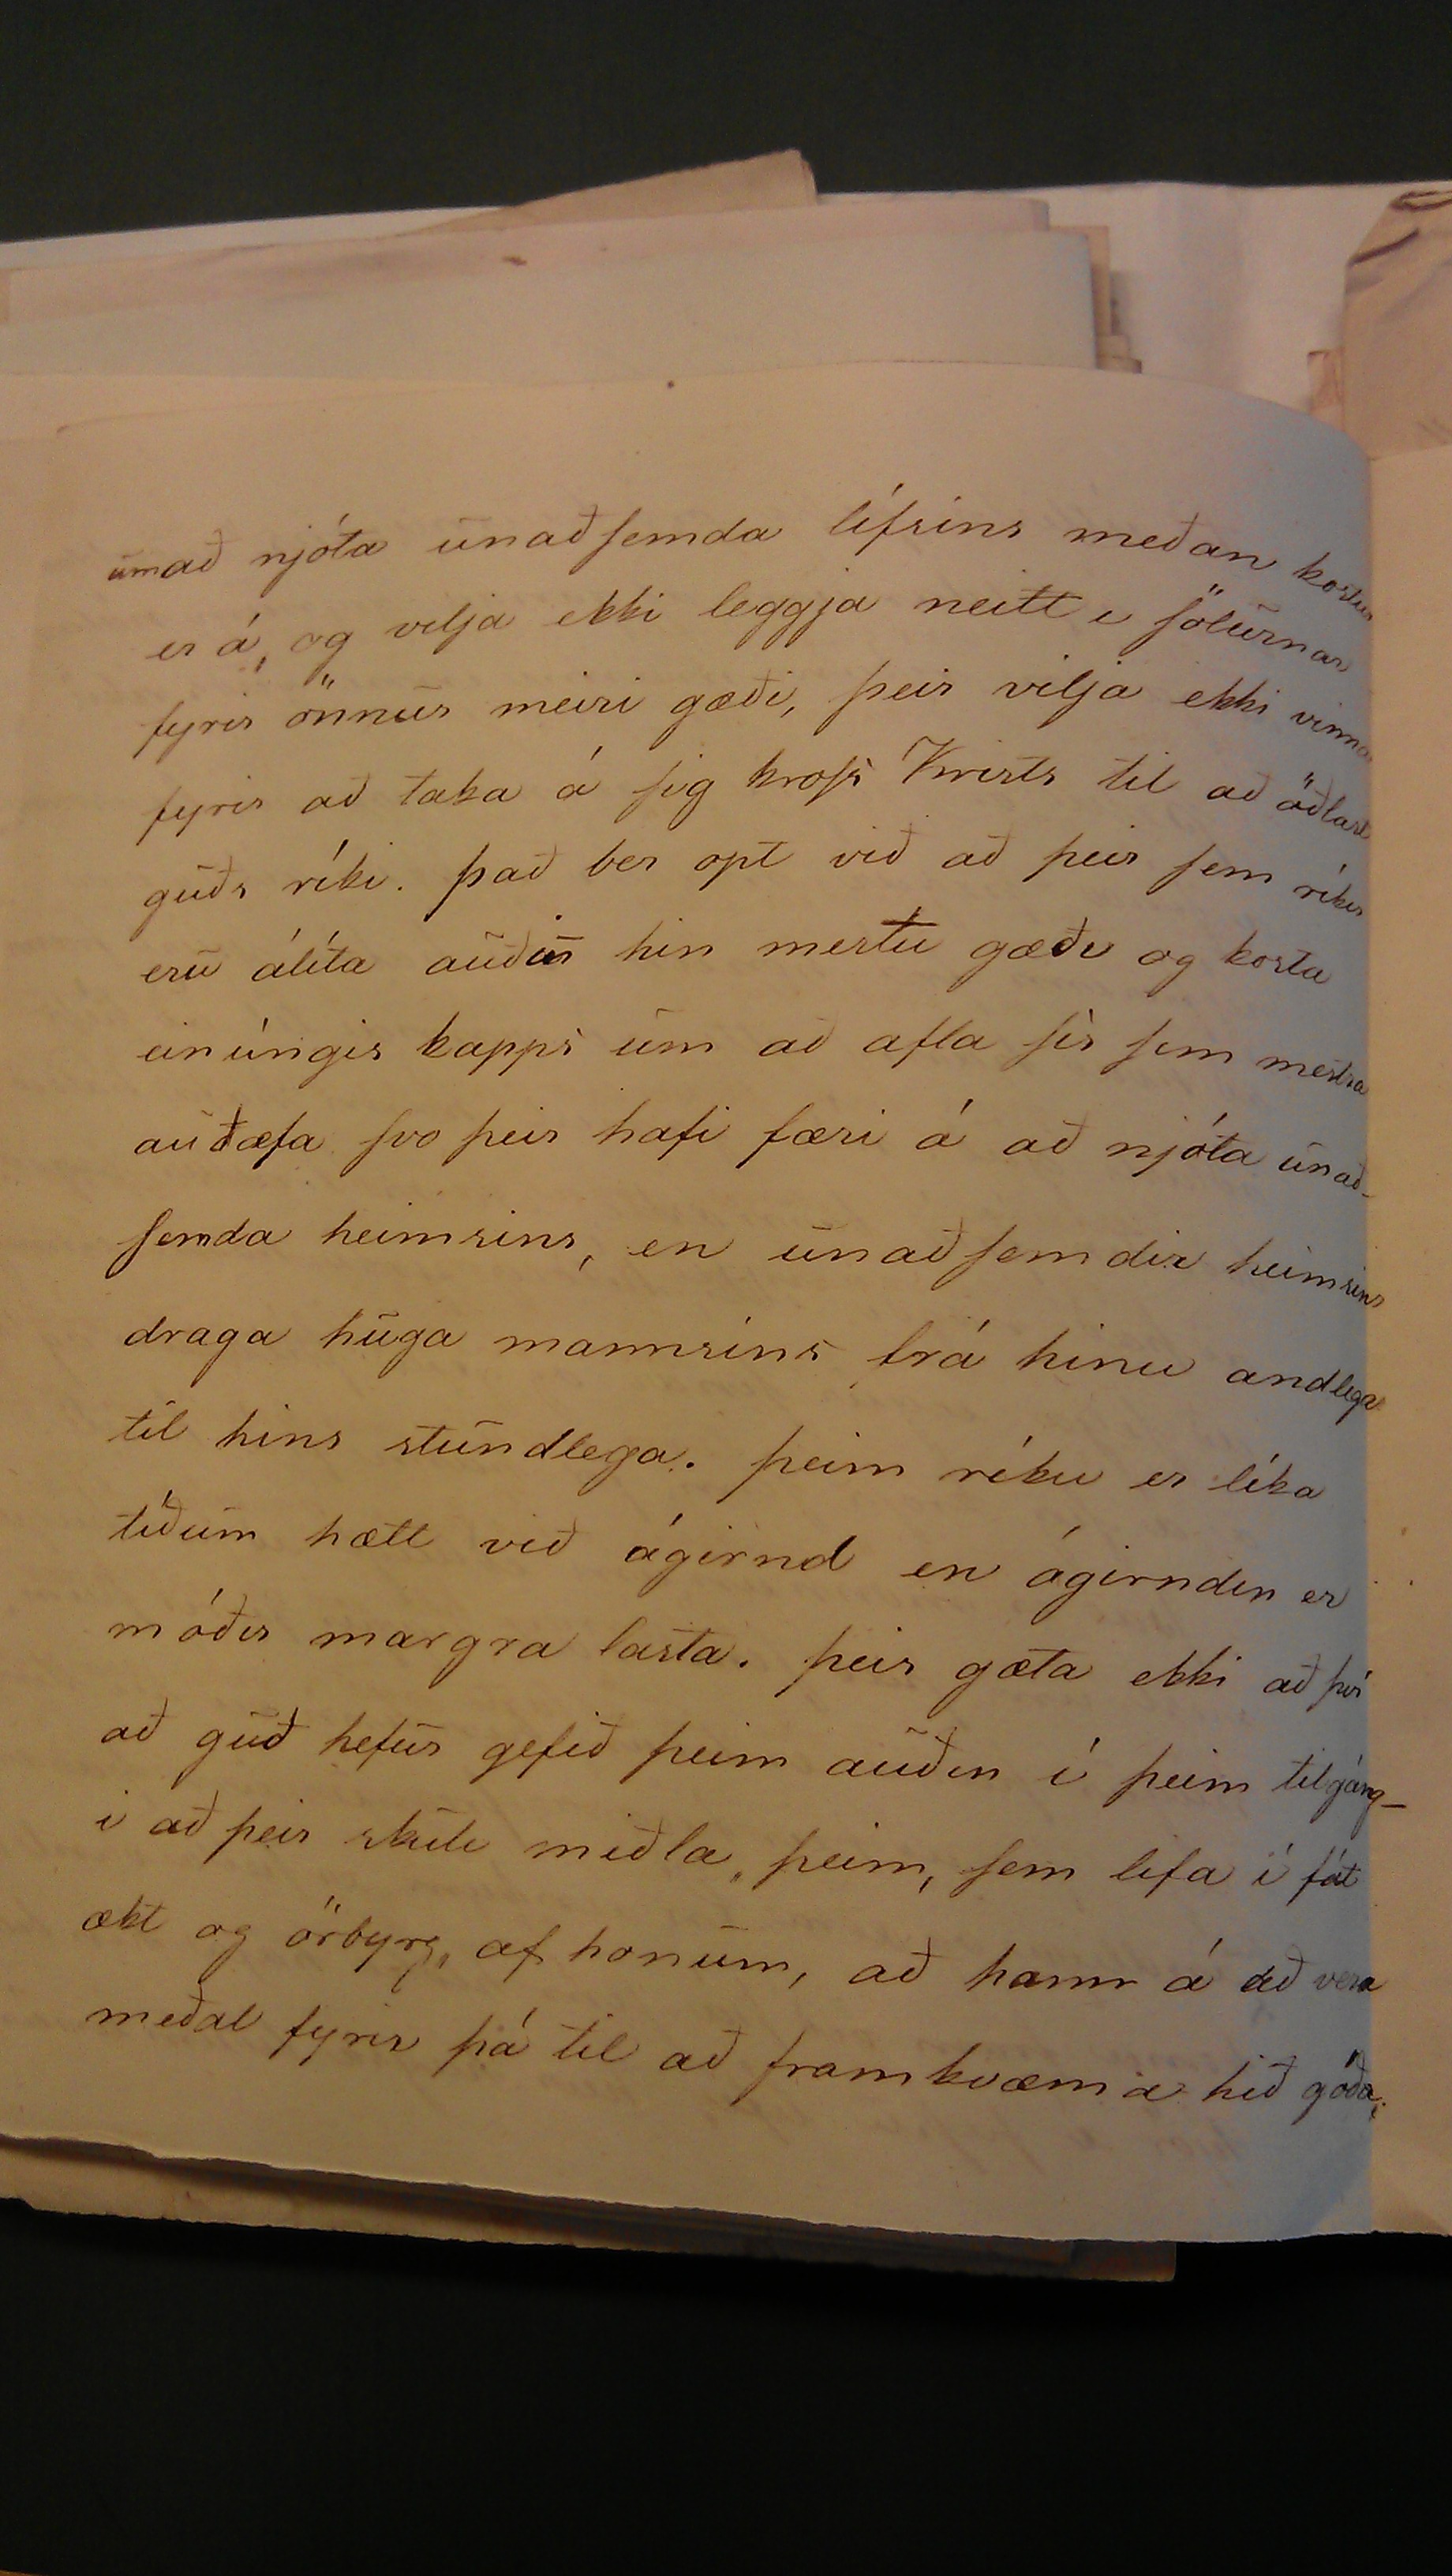 um að njóta unaðsemda lífsins meðan kostur
er á, og vilja ekki leggja neitt í sölurnar
fyrir önnur meiri gæði, þeir vilja ekki vinna
fyrir að taka á sig kross Krists til að öðlast
guðs ríki. Það ber opt við að þeir sem ríkir
eru álíta auðin hin mestu gæði og kosta
einúngis kapps um að afla sér sem mestra
auðæfa svo þeir hafi færi á að njóta unað-
semda heimsins, en unaðsemdir heimsins
draga huga mannsins frá hinu andlega
til hins stundlega. Þeim ríku er líka
tíðum hætt við ágirnd en ágirndin er
móðir margra lasta. Þeir gæta ekki að því
að guð hefur gefið þeim auðin í þeim tilgáng-
i að þeir skuli miðla, þeim, sem lifa í fát
ækt og örbyrg, af honum, að hann á að vera
meðal fyrir þá til að framkvæma hið góða,